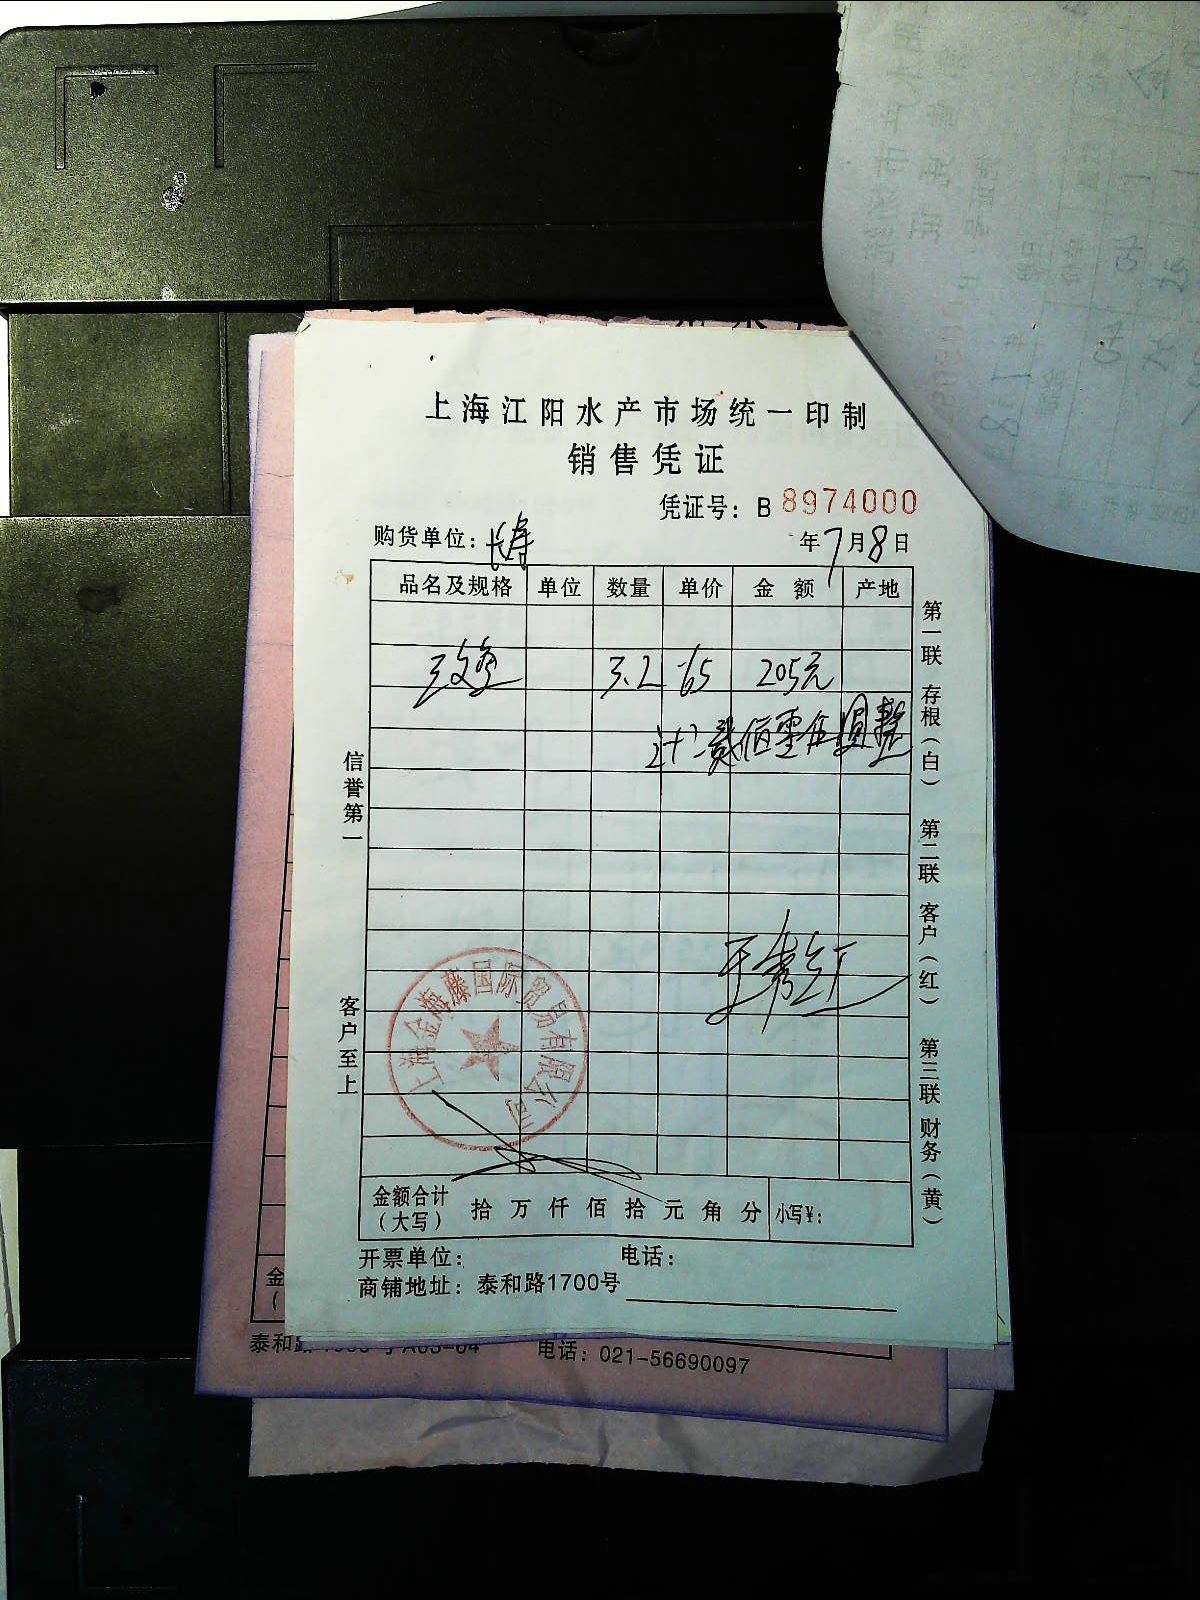 上海江阳水产市场统一印制
销售凭证
凭证号：B 8974000
购货单位：长寿 年7月8日
品名及规格 单位 数量 单价 金额 产地
三文鱼 3.2 65 205元
计：贰佰零伍圆整
信誉第一
客户至上
第一联 存根（白） 第二联 客户（红） 第三联 财务（黄）
上海金海藤国际贸易有限公司
金额合计（大写） 拾 万 仟 佰 拾 元 角 分 小写¥：
开票单位： 电话：
商铺地址：泰和路1700号
电话：021-56690097